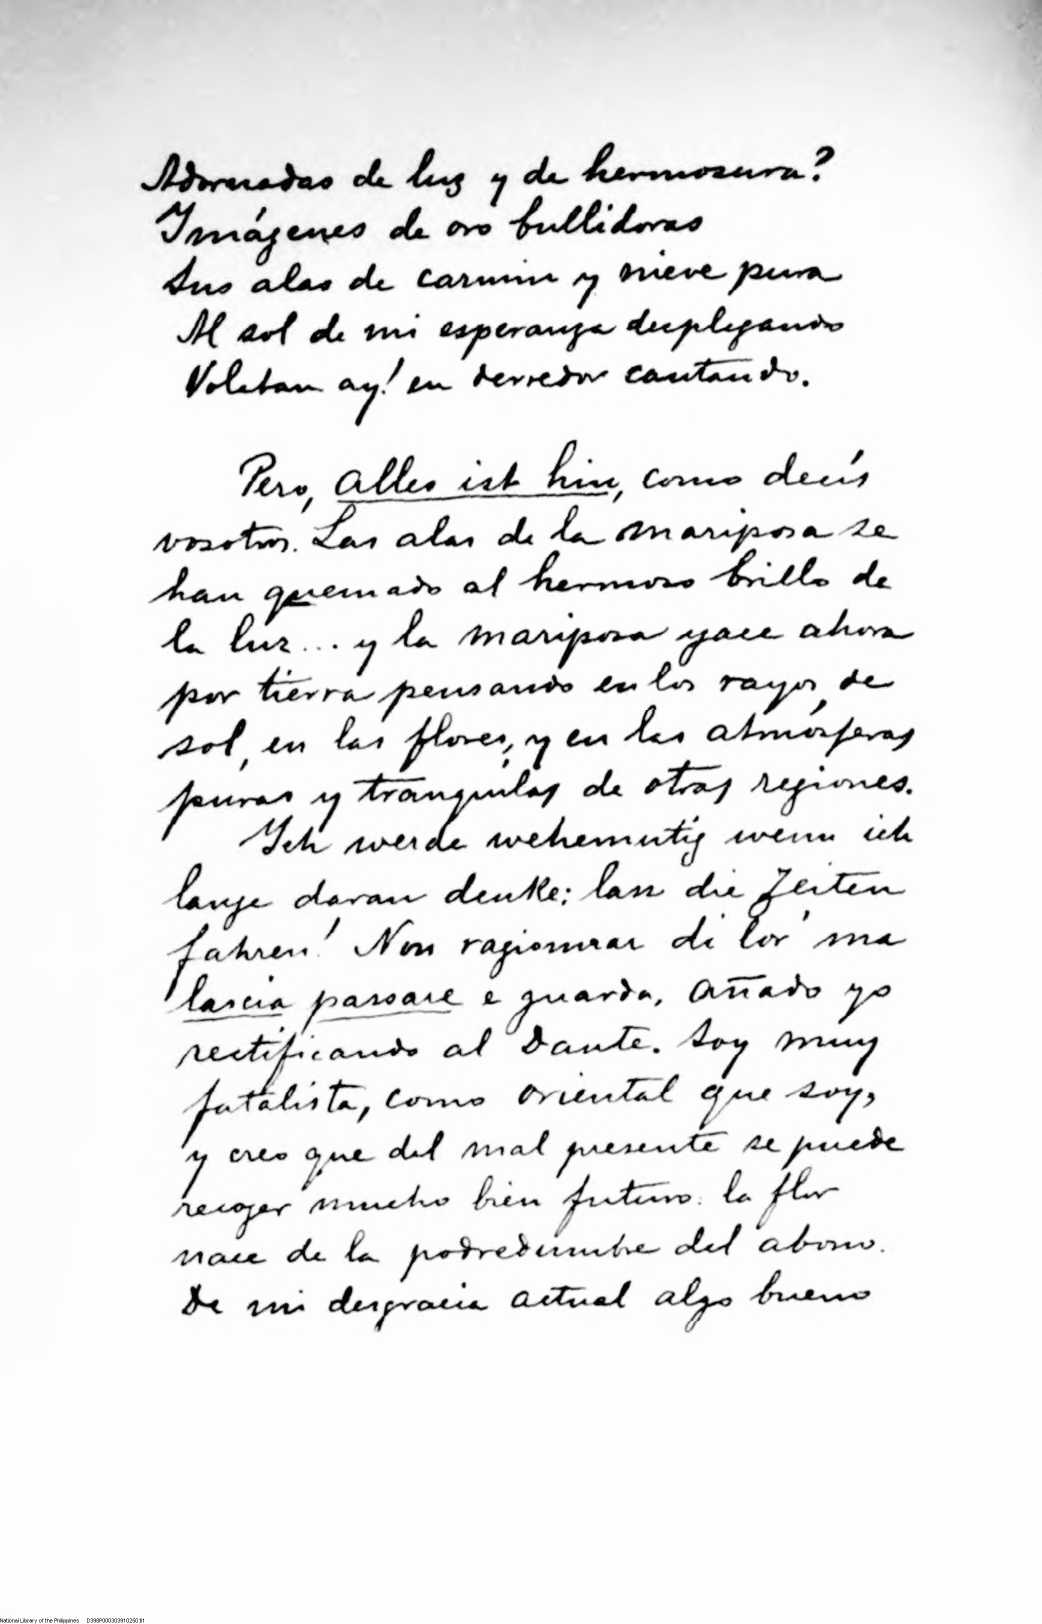 Adornadas de luz y de hermosura?
Imágenes de oro bullidoras
Sus alas de carmin y nieve pura
Al sol de mi esperanza desplegando
Volaban ay! en derredor cantando.
Pero, alles ist hin, como decís
vosotros. Las alas de la mariposa se
han quemado al hermoso brillo de
la luz... y la mariposa yace ahora
por tierra pensando en los rayos de
sol, en las flores, y en las atmósferas
puras y tranquilas de otras regiones.
Ich werde wehemutig wenn ich
lange daran denke: lass die Zeiten
fahren! Non ragionar di lor ma
lascia passare e guarda, añado yo
rectificando al Dante. Soy muy
fatalista, como oriental que soy,
y creo que del mal presente se puede
recoger mucho bien futuro: la flor
nace de la podredumbre del abono.
De mi desgracia actual algo bueno
National Library of the Philippines D398P00030391025018t